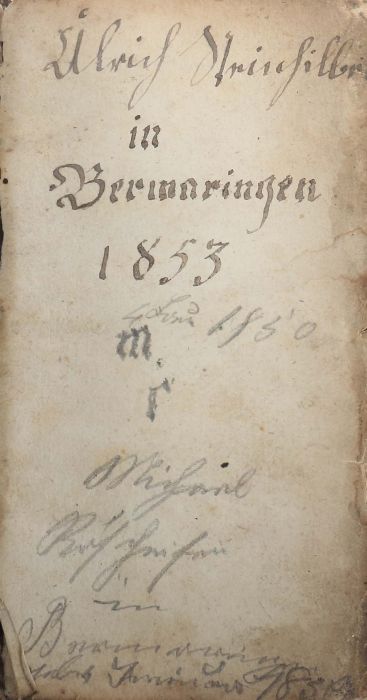 Ulrich Steinhilber
in
Bermaringen
1853
1850
m
r
Michael
in
Bermaringen